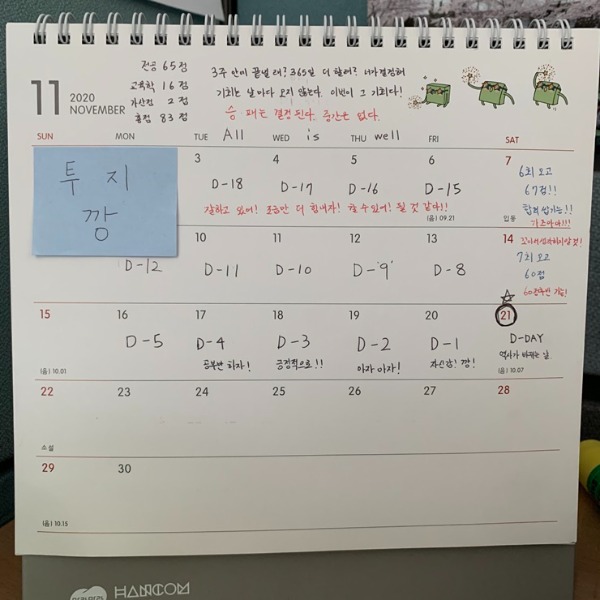 전공 65점
교육학 16점
가산점 2점
총점 83점
3주 안이 끝낼래? 365일 더 할래? 너가 결정해
기회는 날마다 오지 않는다. 이번이 그 기회다!
승 패는 결정된다. 중간은 없다.
11 2020 NOVEMBER
All is well
SUN MON TUE WED THU FRI SAT
투 지
깡
3 4 5 6 7
D-18 D-17 D-16 D-15
6회 모고
67점!!
합격
잘하고 있어! 조금만 더 힘내자! 할 수 있어! 될 것 같다!!
(음) 09.21
입동
10 11 12 13 14
D-12 D-11 D-10 D-"9" D-8
7회 모고
60점
15 16 17 18 19 20 21
D-5 D-4 D-3 D-2 D-1 D-DAY
공부만 하자! 긍정적으로!! 아자 아자! 자신감! 깡!
역사가 바뀌는 날
(음) 10.01
(음) 10.07
22 23 24 25 26 27 28
소설
29 30
(음) 10.15
HANCOM